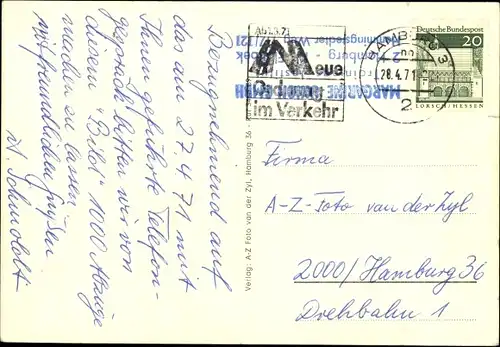 Bezugnehmend auf
das am 27.4.71 mit
Ihnen geführte Telefon-
gespräch bitten wir von
diesem "Bild" 1000 Abzüge
machen zu lassen.
Mit freundlichen Grüßen
Verlag: A-Z Foto van der Zyl, Hamburg 36
Ab 1.3.71
Neue
Ordnung
im Verkehr
MARGARINE
Hamburg
HAMBURG
28.4.71
2
Deutsche Bundespost
20
LORSCH/HESSEN
Firma
A-Z-Foto van der Zyl
2000/Hamburg 36
Drehbahn 1